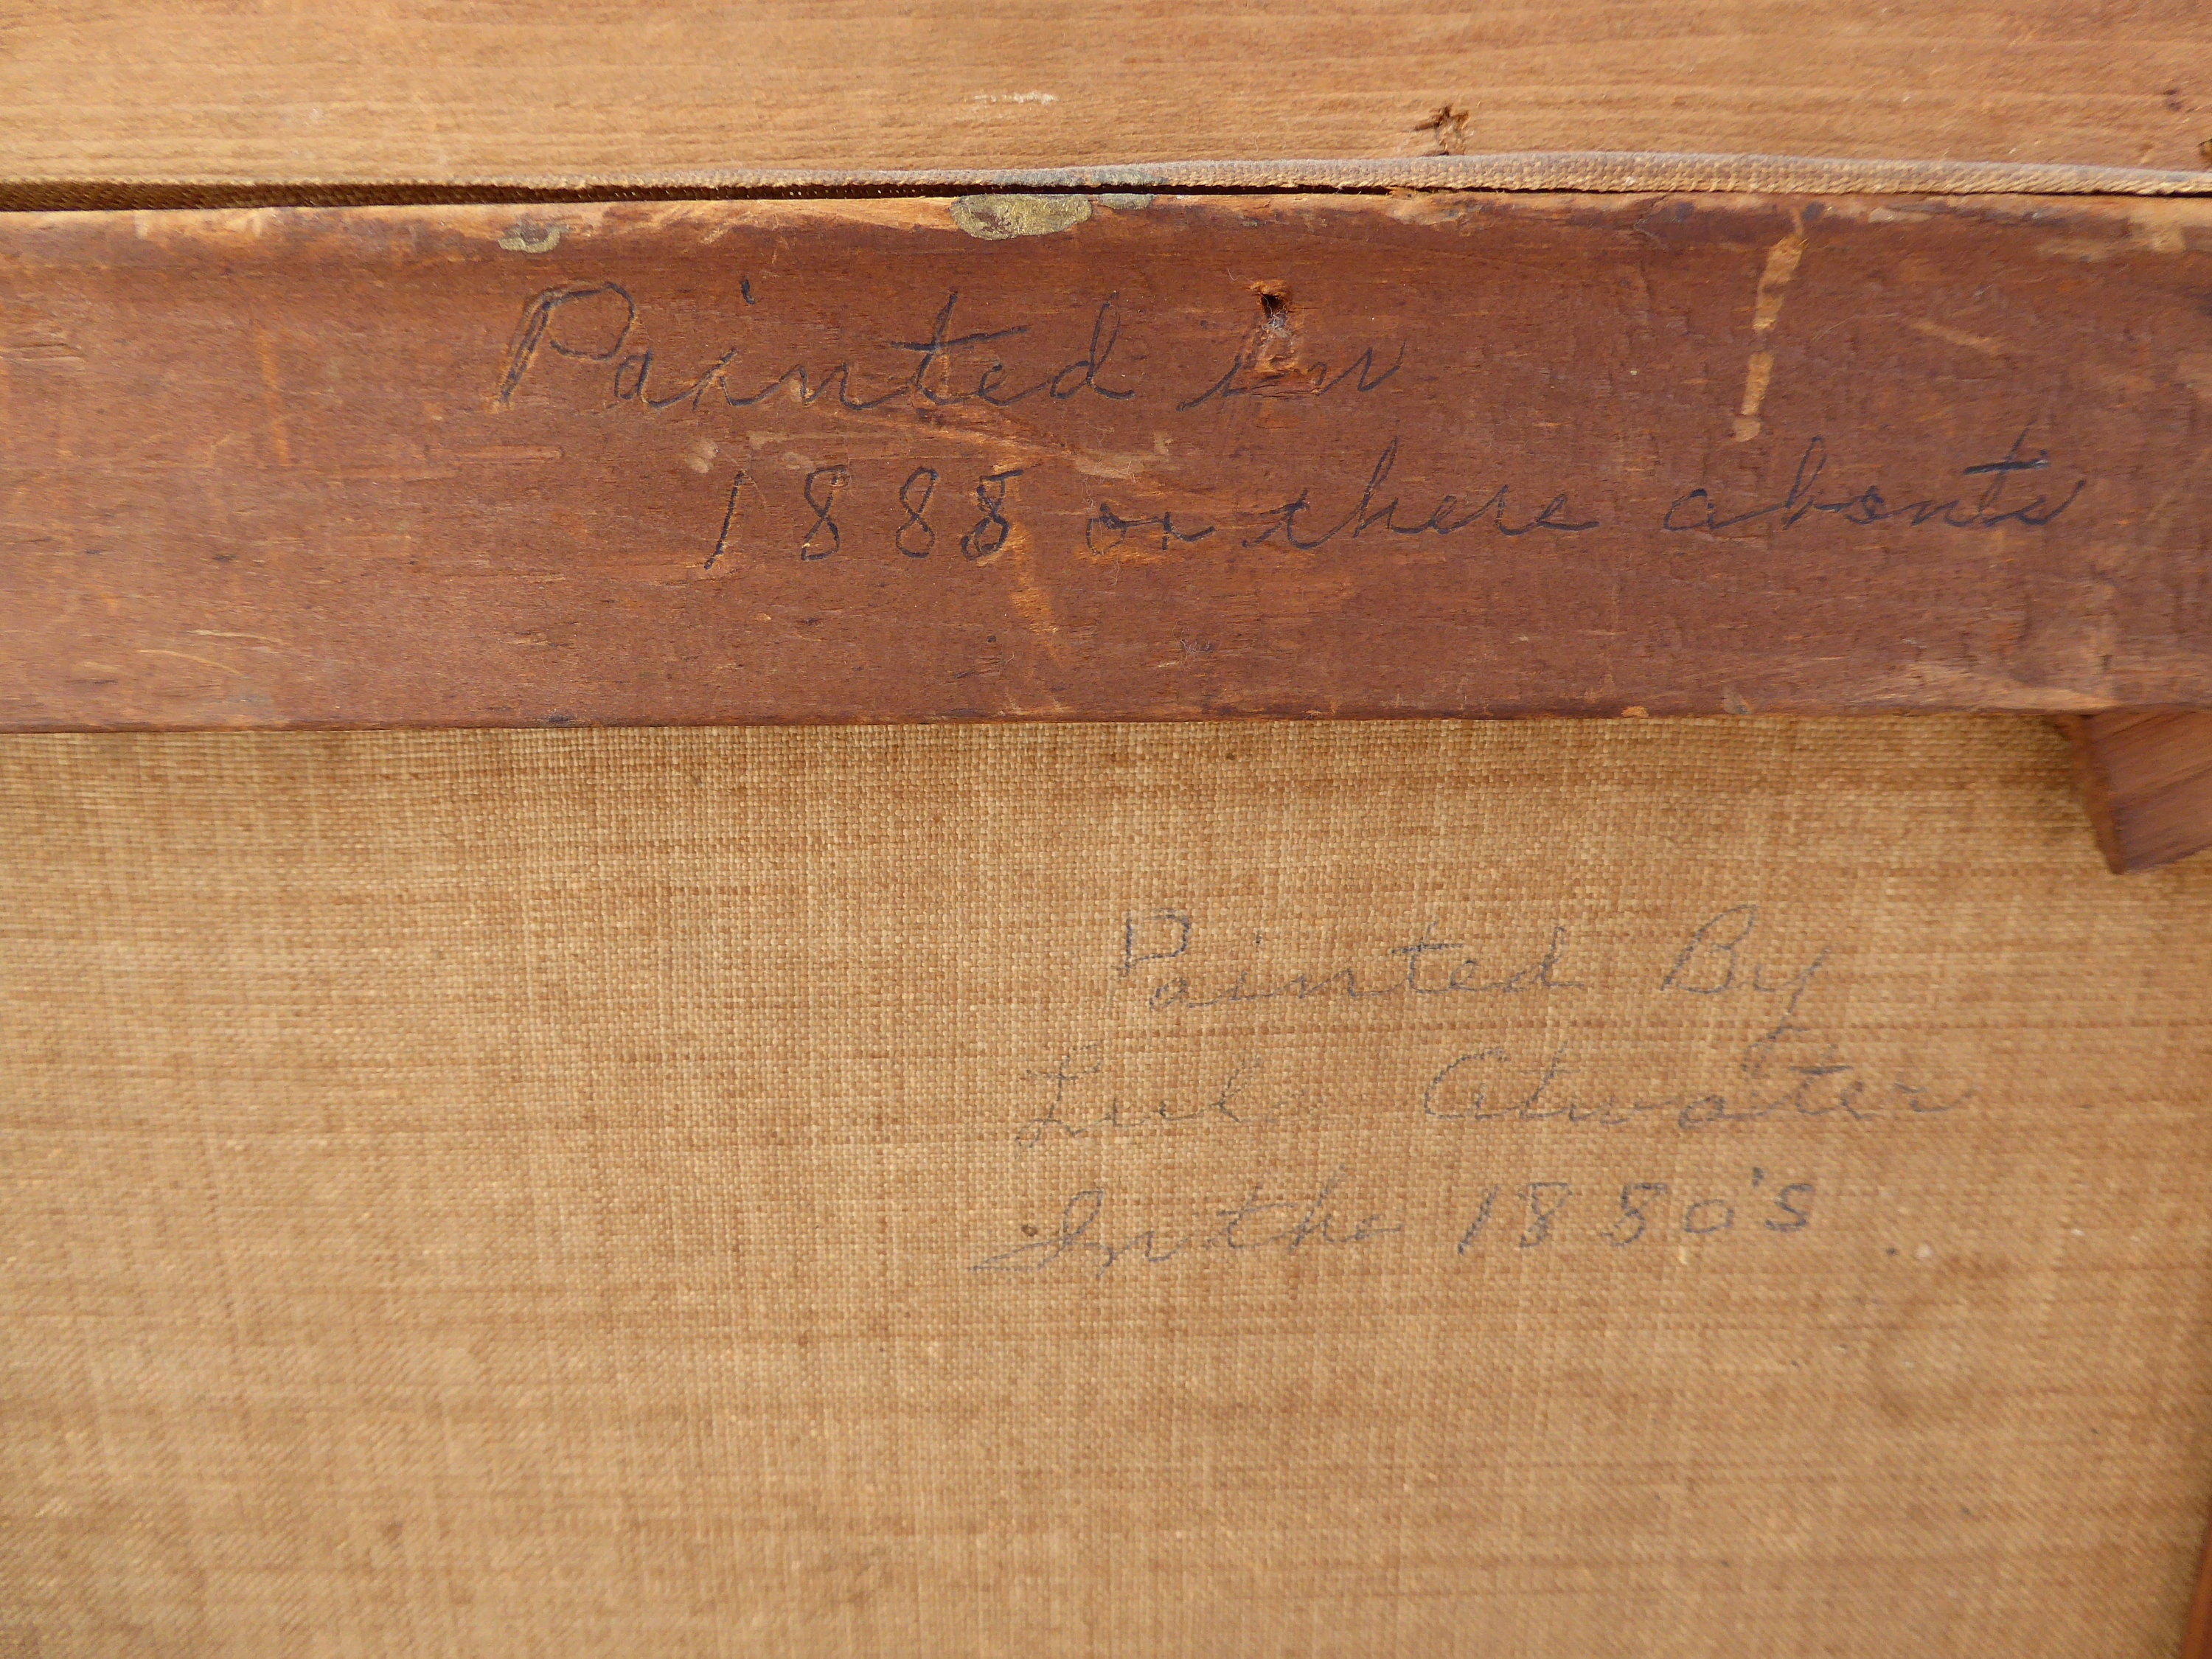 Painted in
1885 or there abouts
Painted By
Lula Atwater
In the 1850's